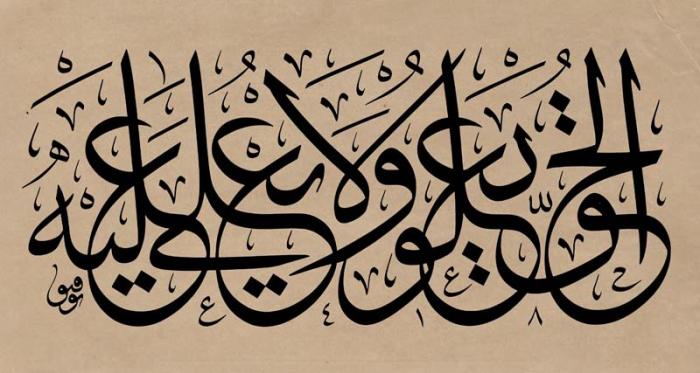 الحق يعلو ولا يعلى عليه
توفيق